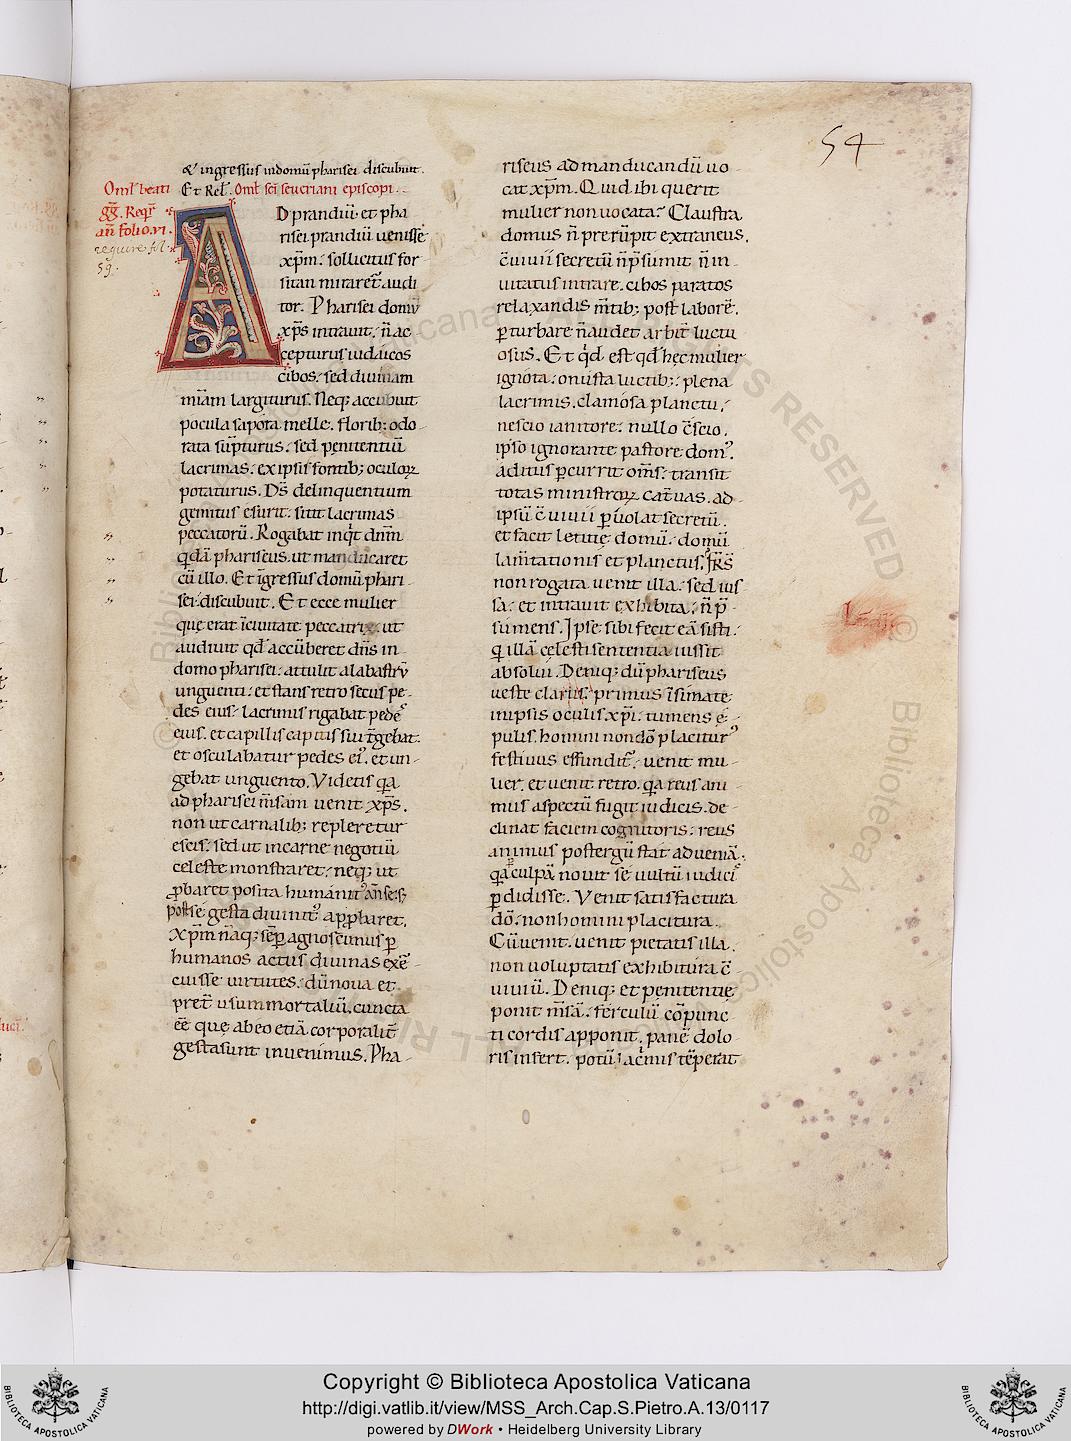 54
& ingressus indomū pharisei discubuit.
Et Rel̄. Oml̄ sc̄i seueriani episcopi.
Oml̄ beati
gḡ. Reqr̄
an̄ folio.vi.
require fol
59.
AD prandiū et pha
risei prandiū uenisse
xp̄m. sollicitus for
sitan miraret᷑ audi
tor. Pharisei domū
xp̄s intrauit. n̄ ac
cepturus iudaicos
cibos. sed diuinam
mīam largiturus. Neq; accubuit
pocula sapora melle. florib; odo
rata sūpturus. sed penitentiū
lacrimas. ex ipsis fontib; oculoꝝ
potaturus. Ds̄ delinquentium
gemitus esurit. sitit lacrimas
peccatorū. Rogabat inq̇t dn̄m
qdā phariseus. ut manducaret
cū illo. Et īgressus domū phari
sei discubuit. Et ecce mulier
que erat īciuitate peccatrix. ut
audiuit qd̄ accūberet dn̄s in
domo pharisei. attulit alabastrū
unguenti. et stans retro secus pe
des eius. lacrimis rigabat pedeˀ
eius. et capillis capitis sui t̄gebat.
et osculabatur pedes eiˀ. et un
gebat unguento. Videtis q̄a
ad pharisei m̄sam uenit xp̄s.
non ut carnalib; repleretur
escis. sed ut incarne negotiū
celeste monstraret. neq; ut
ꝓbaret posita humanitˀ
post se gesta diuinitˀ apꝓbaret.
Xp̄m nāq; sēꝑ agnoscimus ꝑ
humanos actus diuinas exē
cuisse uirtutes. dū noua et
pret᷑ usum mortaliū. cuncta
eē que ab eo etiā corporalit᷑
gesta sunt inuenimus. Pha
riseus ad manducandū uo
cat xp̄m. Quid ibi querit
mulier non uocata? Claustra
domus n̄ prerūpit extraneus.
c̄uiuii secretū n̄ p̄sumit n̄ in
uitatus intrare. cibos paratos
relaxandis m̄tib; post laborē.
ꝑturbare n̄ audet arbit᷑ luctu
osus. Et q̇d est qd̄ hęc mulier
ignota. onusta luctib;. plena
lacrimis. clamosa planctu.
nescio ianitore. nullo c̄scio.
ipso ignorante pastore domˀ.
aditus ꝑcurrit om̄s. transit
totas ministroꝝ cat᷑uas. ad
ipsū c̄uiuii ꝑuolat secretū.
et facit letitię domū. domū
lam̄tationis et planctus. Fr̄s
non rogata uenit illa. sed ius
sa. et intrauit exhibita. n̄ p̄
sumens. Ipse sibi fecit eā sisti.
q illā celesti sententia iussit
absolui. Deniq; dū phariseus
ueste clarus. primus ī sūmate
in ipsis oculis xp̄i. tumens e
pulis. homini non dō placiturˀ
festiuus effundit᷑. uenit mu
lier. et uenit retro. q̄a reus ani
mus aspectū fugit iudicis. de
clinat faciem cognitoris. reus
animus postergū stat ad ueniā.
q̄a ꝑ culpā nouit se uultū iudicˀ
ꝑdidisse. Venit satisfactura
dō. non homini placitura.
Cū uenit. uenit pietatis illa.
non uoluptatis exhibitura c̄
uiuiū. Deniq; et penitentię
ponit m̄sā. ferculū cōpunc
ti cordis apponit. panē dolo
ris insert. potū laċmis tēperat
Copyright © Biblioteca Apostolica Vaticana
http://digi.vatlib.it/view/MSS_Arch.Cap.S.Pietro.A.13/0117
powered by DWork • Heidelberg University Library
BIBLIOTECA APOSTOLICA VATICANA
BIBLIOTECA APOSTOLICA VATICANA
© Biblioteca Apostolica Vaticana ALL RIGHTS RESERVED